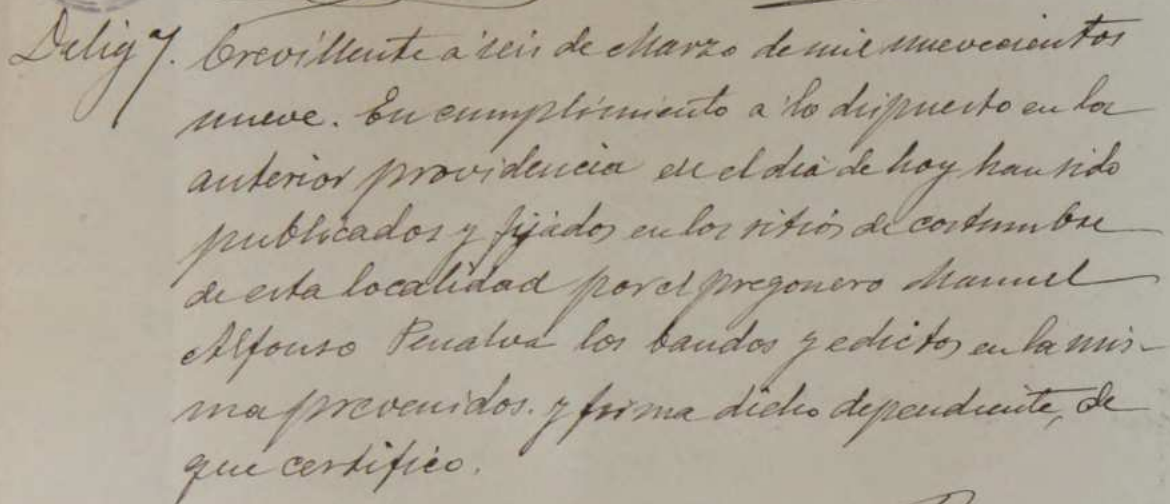 Delig.ª Crevillente a seis de Marzo de mil nuevecientos
nueve. En cumplimiento a lo dispuesto en la
anterior providencia en el dia de hoy han sido
publicados y fijados en los sitios de costumbre
de esta localidad por el pregonero Manuel
Alfonso Penalva los bandos y edictos en la mis-
ma prevenidos. y firma dicho dependiente, de
que certifico.